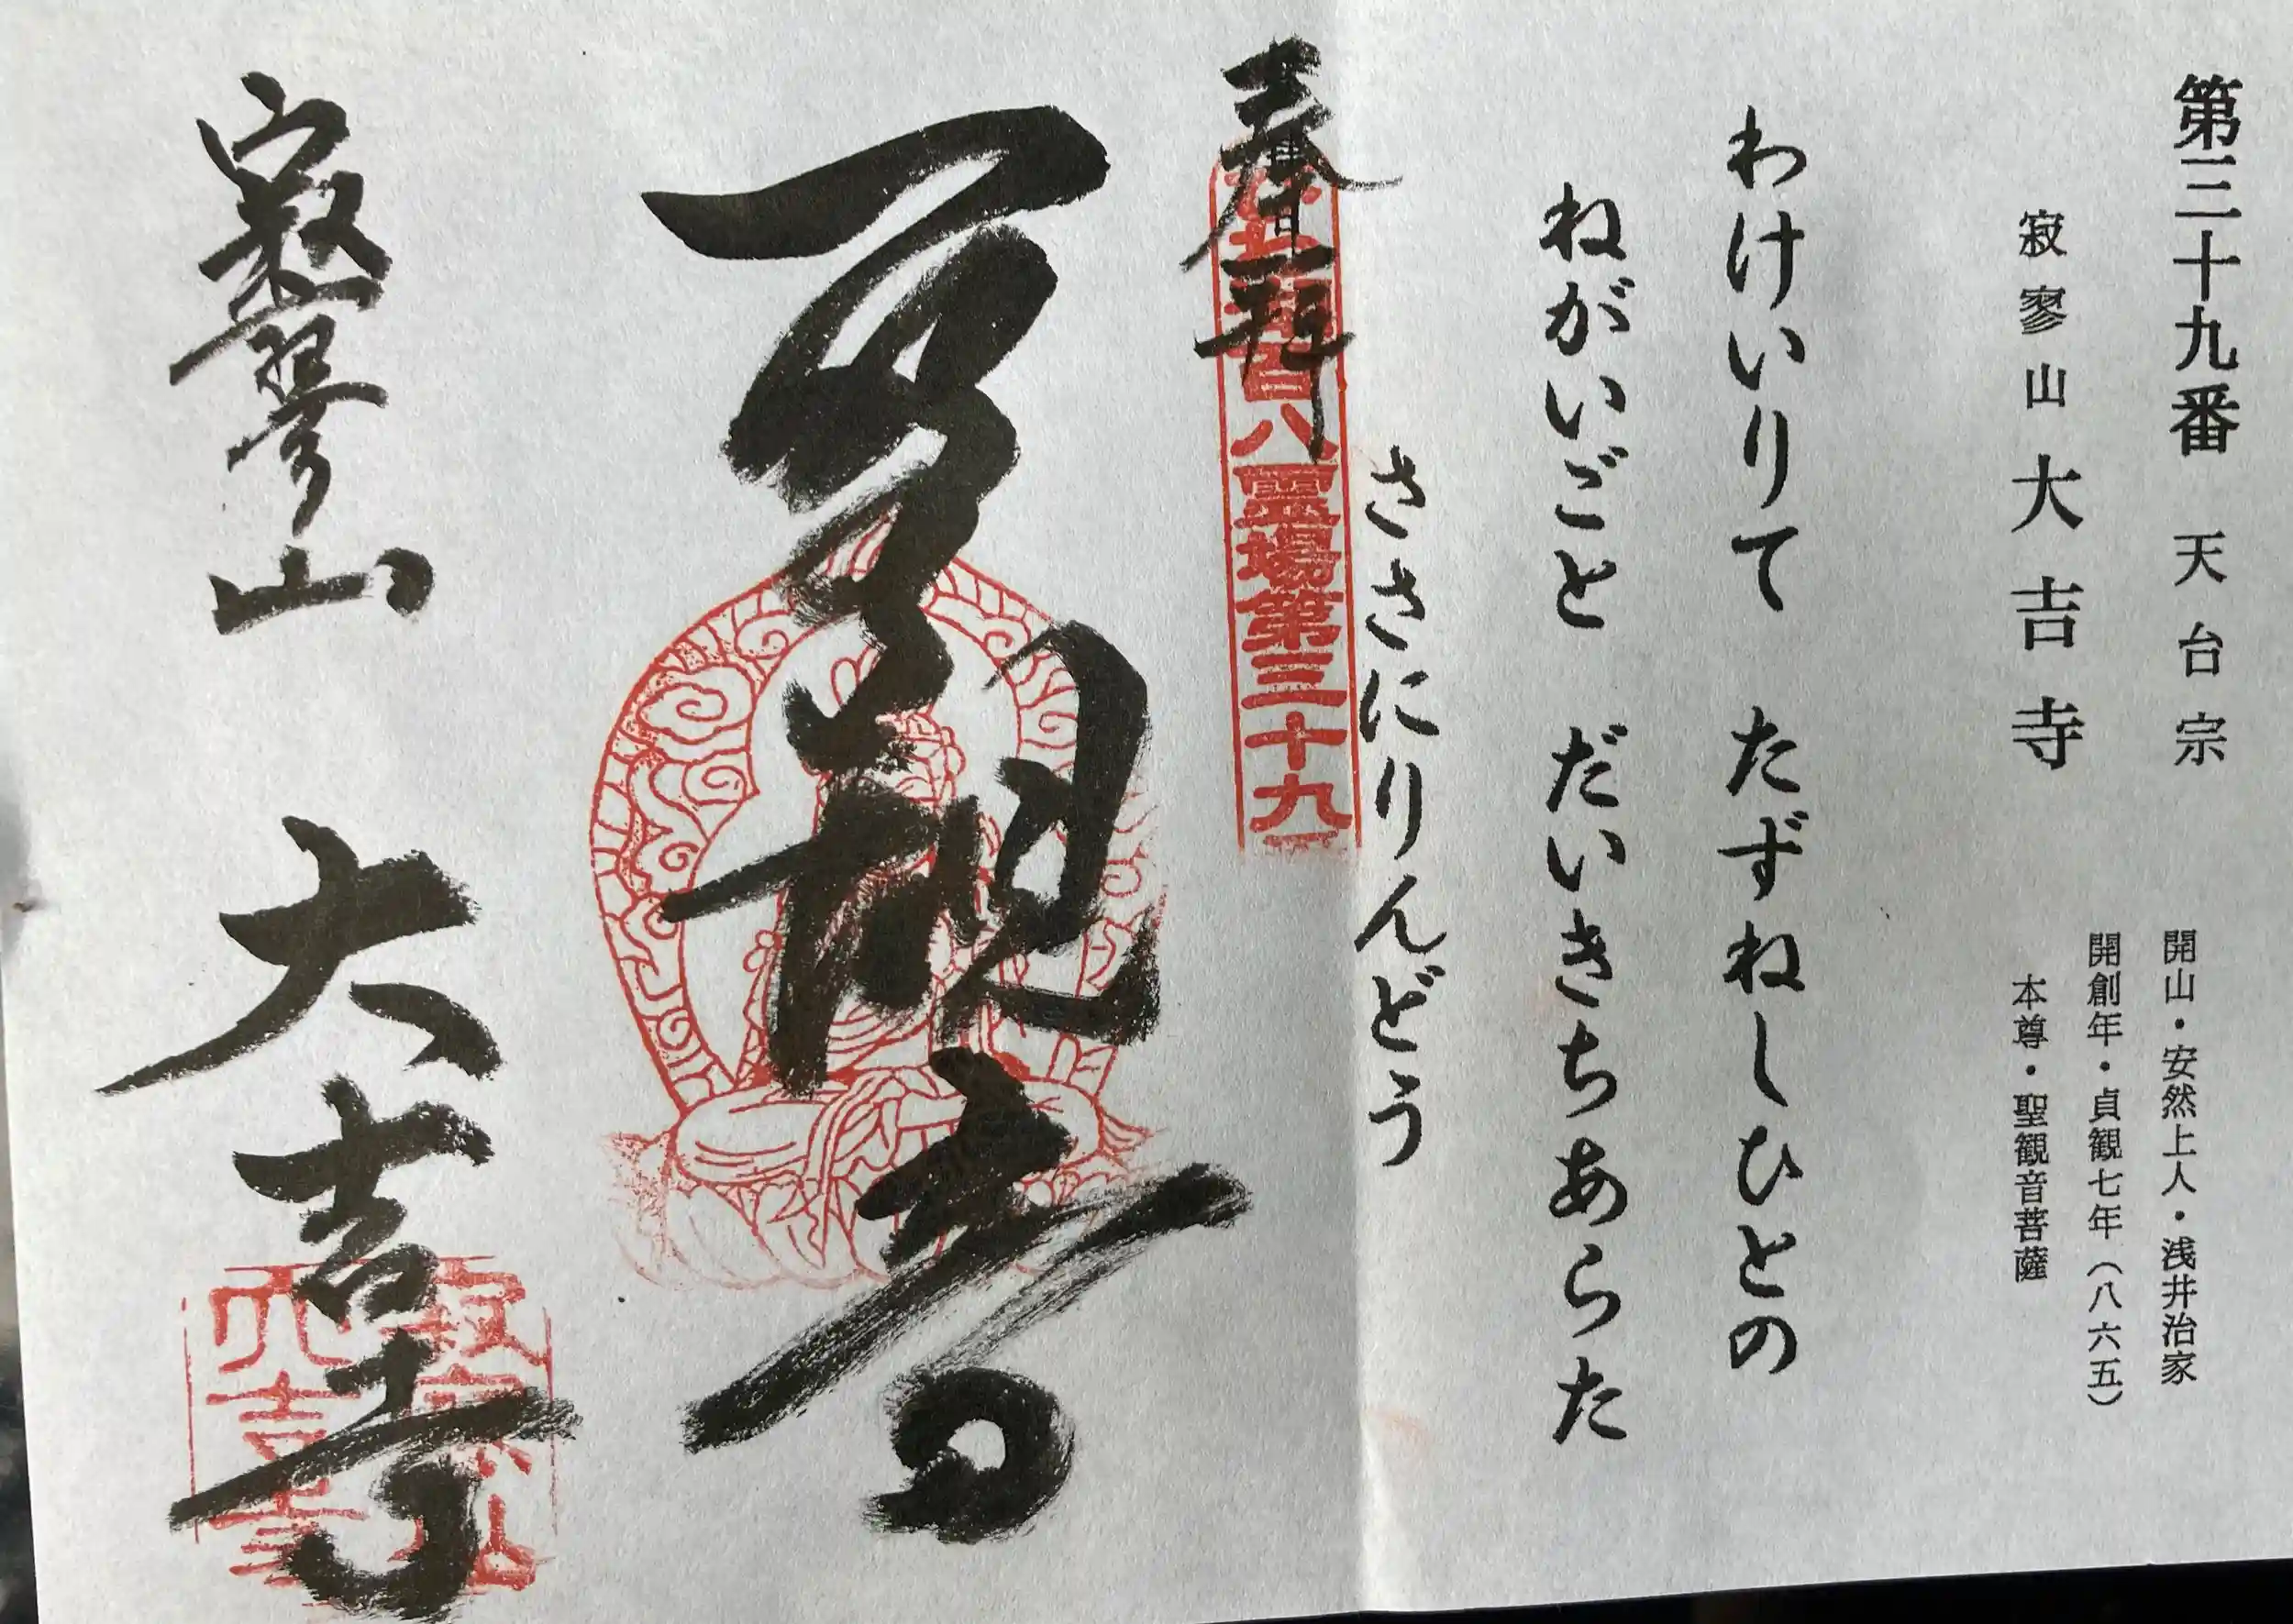 第三十九番 天台宗
寂寥山 大吉寺
開山・安然上人・浅井治家
開創年・貞観七年(八六五)
本尊・聖観音菩薩
わけいりて たずねしひとの
ねがいごと だいきちあらた
ささにりんどう
奉拝
百八霊場第三十九
観音
寂寥山 大吉寺